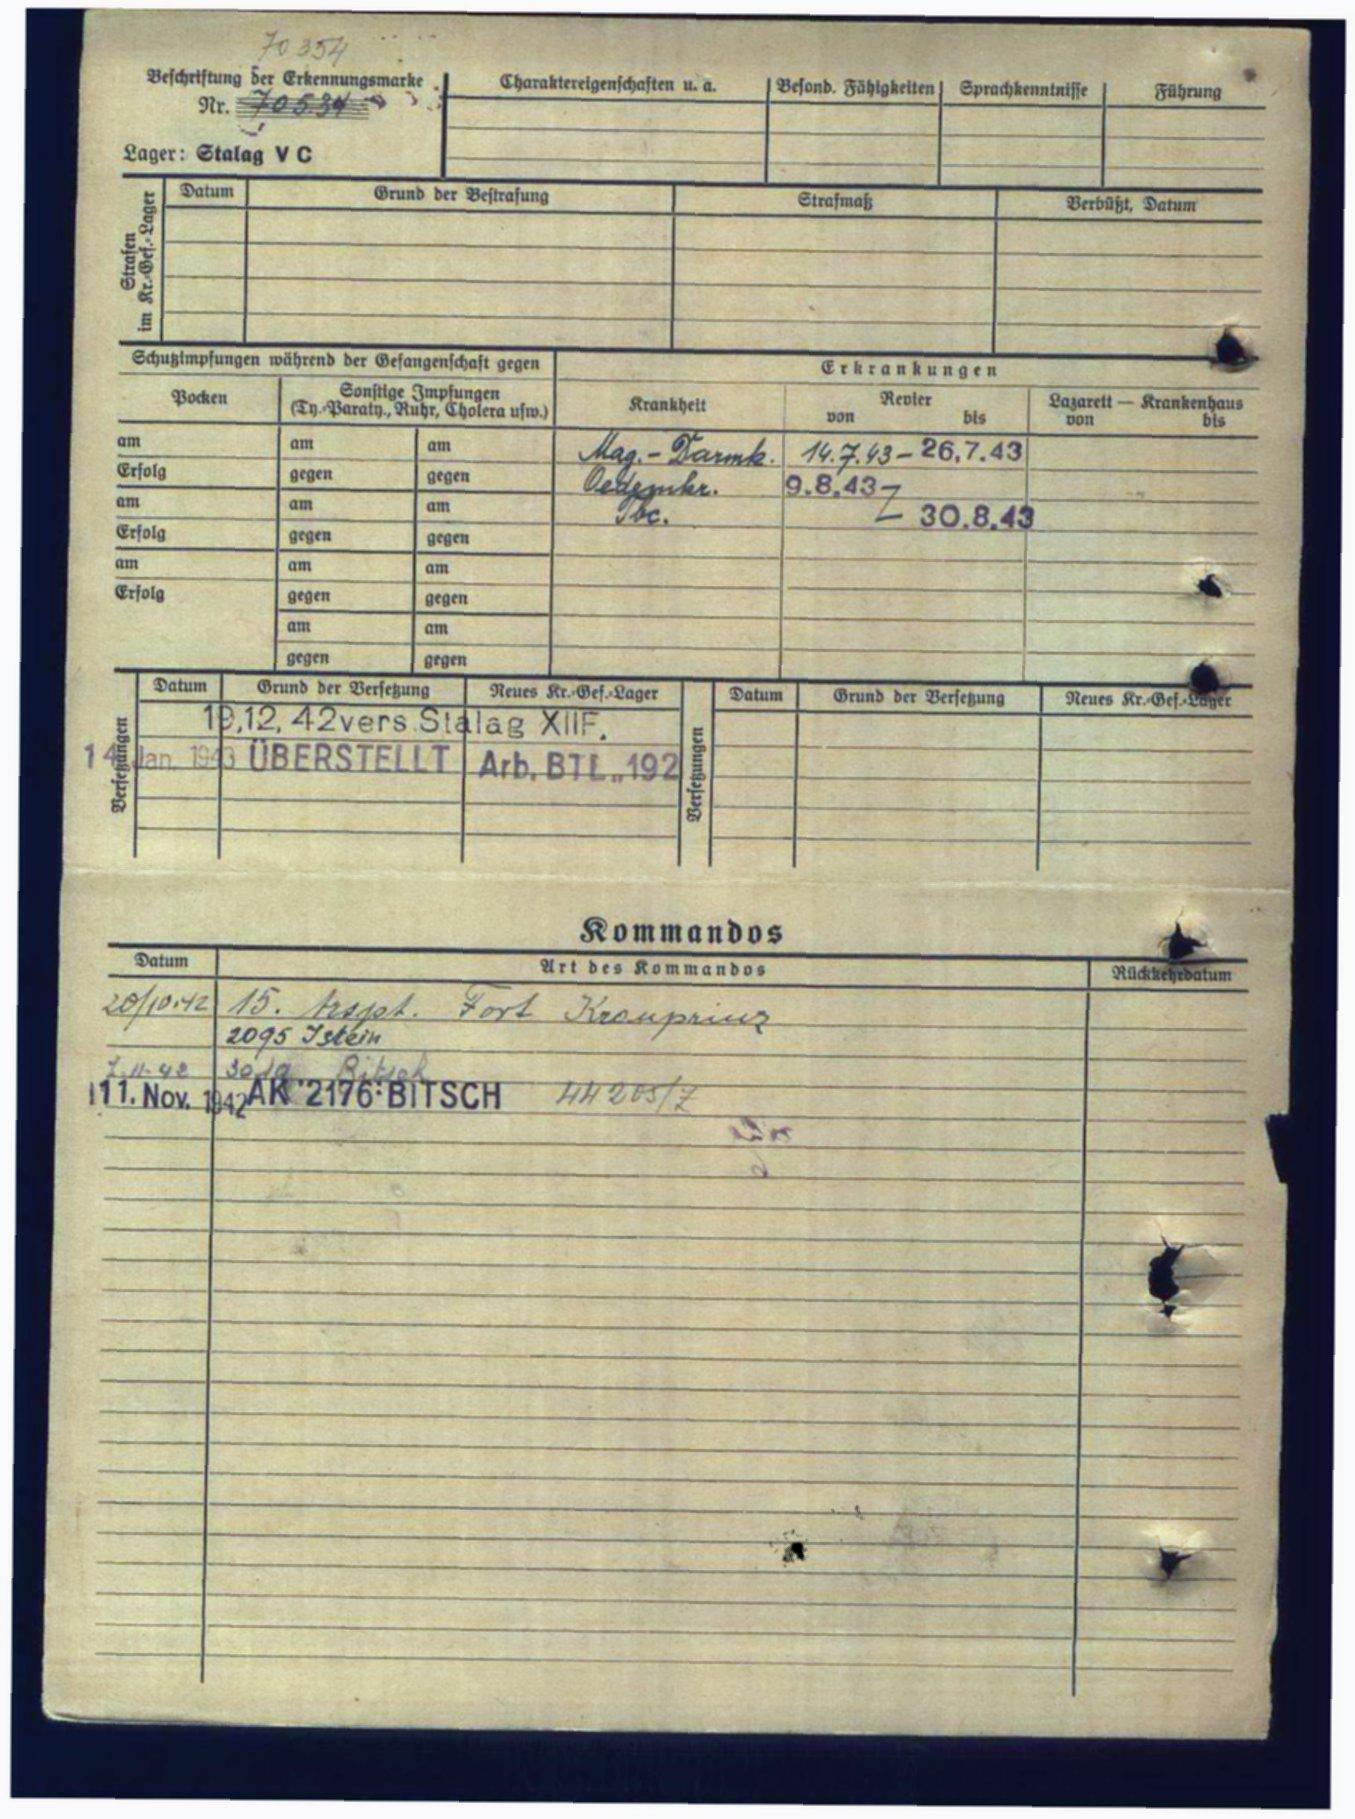 70354
Beschriftung der Erkennungsmarke
Nr. 70534
Lager: Stalag V C
Charaktereigenschaften u. a.
Besond. Fähigkeiten
Sprachkenntnisse
Führung
Strafen
im Kr.-Gef.-Lager
Datum
Grund der Bestrafung
Strafmaß
Verbüßt, Datum
Schutzimpfungen während der Gefangenschaft gegen
Erkrankungen
Pocken
Sonstige Impfungen
(Ty.-Paraty., Ruhr, Cholera usw.)
Krankheit
Revier
von bis
Lazarett — Krankenhaus
von bis
am am am
Mag.-Darmk. 14.7.43 - 26.7.43
Erfolg gegen gegen
Oedemkr. 9.8.43 -
am am am
Tbc. - 30.8.43
Erfolg gegen gegen
am am am
Erfolg gegen gegen
am am
gegen gegen
Versetzungen
Datum Grund der Versetzung Neues Kr.-Gef.-Lager
19.12.42 vers. Stalag XIIF.
14 Jan. 1943 ÜBERSTELLT Arb. BTL. 192
Versetzungen
Datum Grund der Versetzung Neues Kr.-Gef.-Lager
Kommandos
Datum Art des Kommandos Rückkehrdatum
20/10.42 15. Fort Kronprinz
2095 Istein
7.11.42 Bitsch
11. Nov. 1942 AK 2176 BITSCH 44205/7